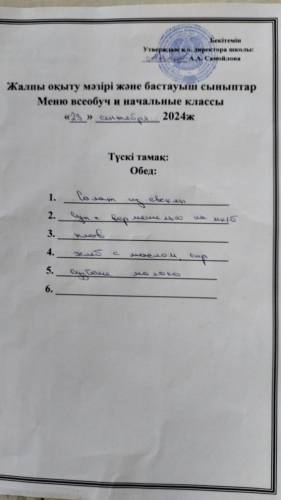 Бекітемін
Утверждаю и.о. директора школы:
А.А. Самойлова
Жалпы оқыту мәзірі және бастауыш сыныптар
Меню всеобуч и начальные классы
«23» сентября 2024ж
Түскі тамақ:
Обед:
1. Салат из свеклы
2. суп с вермешелью на мк/б
3. плов
4. хлеб с маслом, сыр
5. молоко
6.